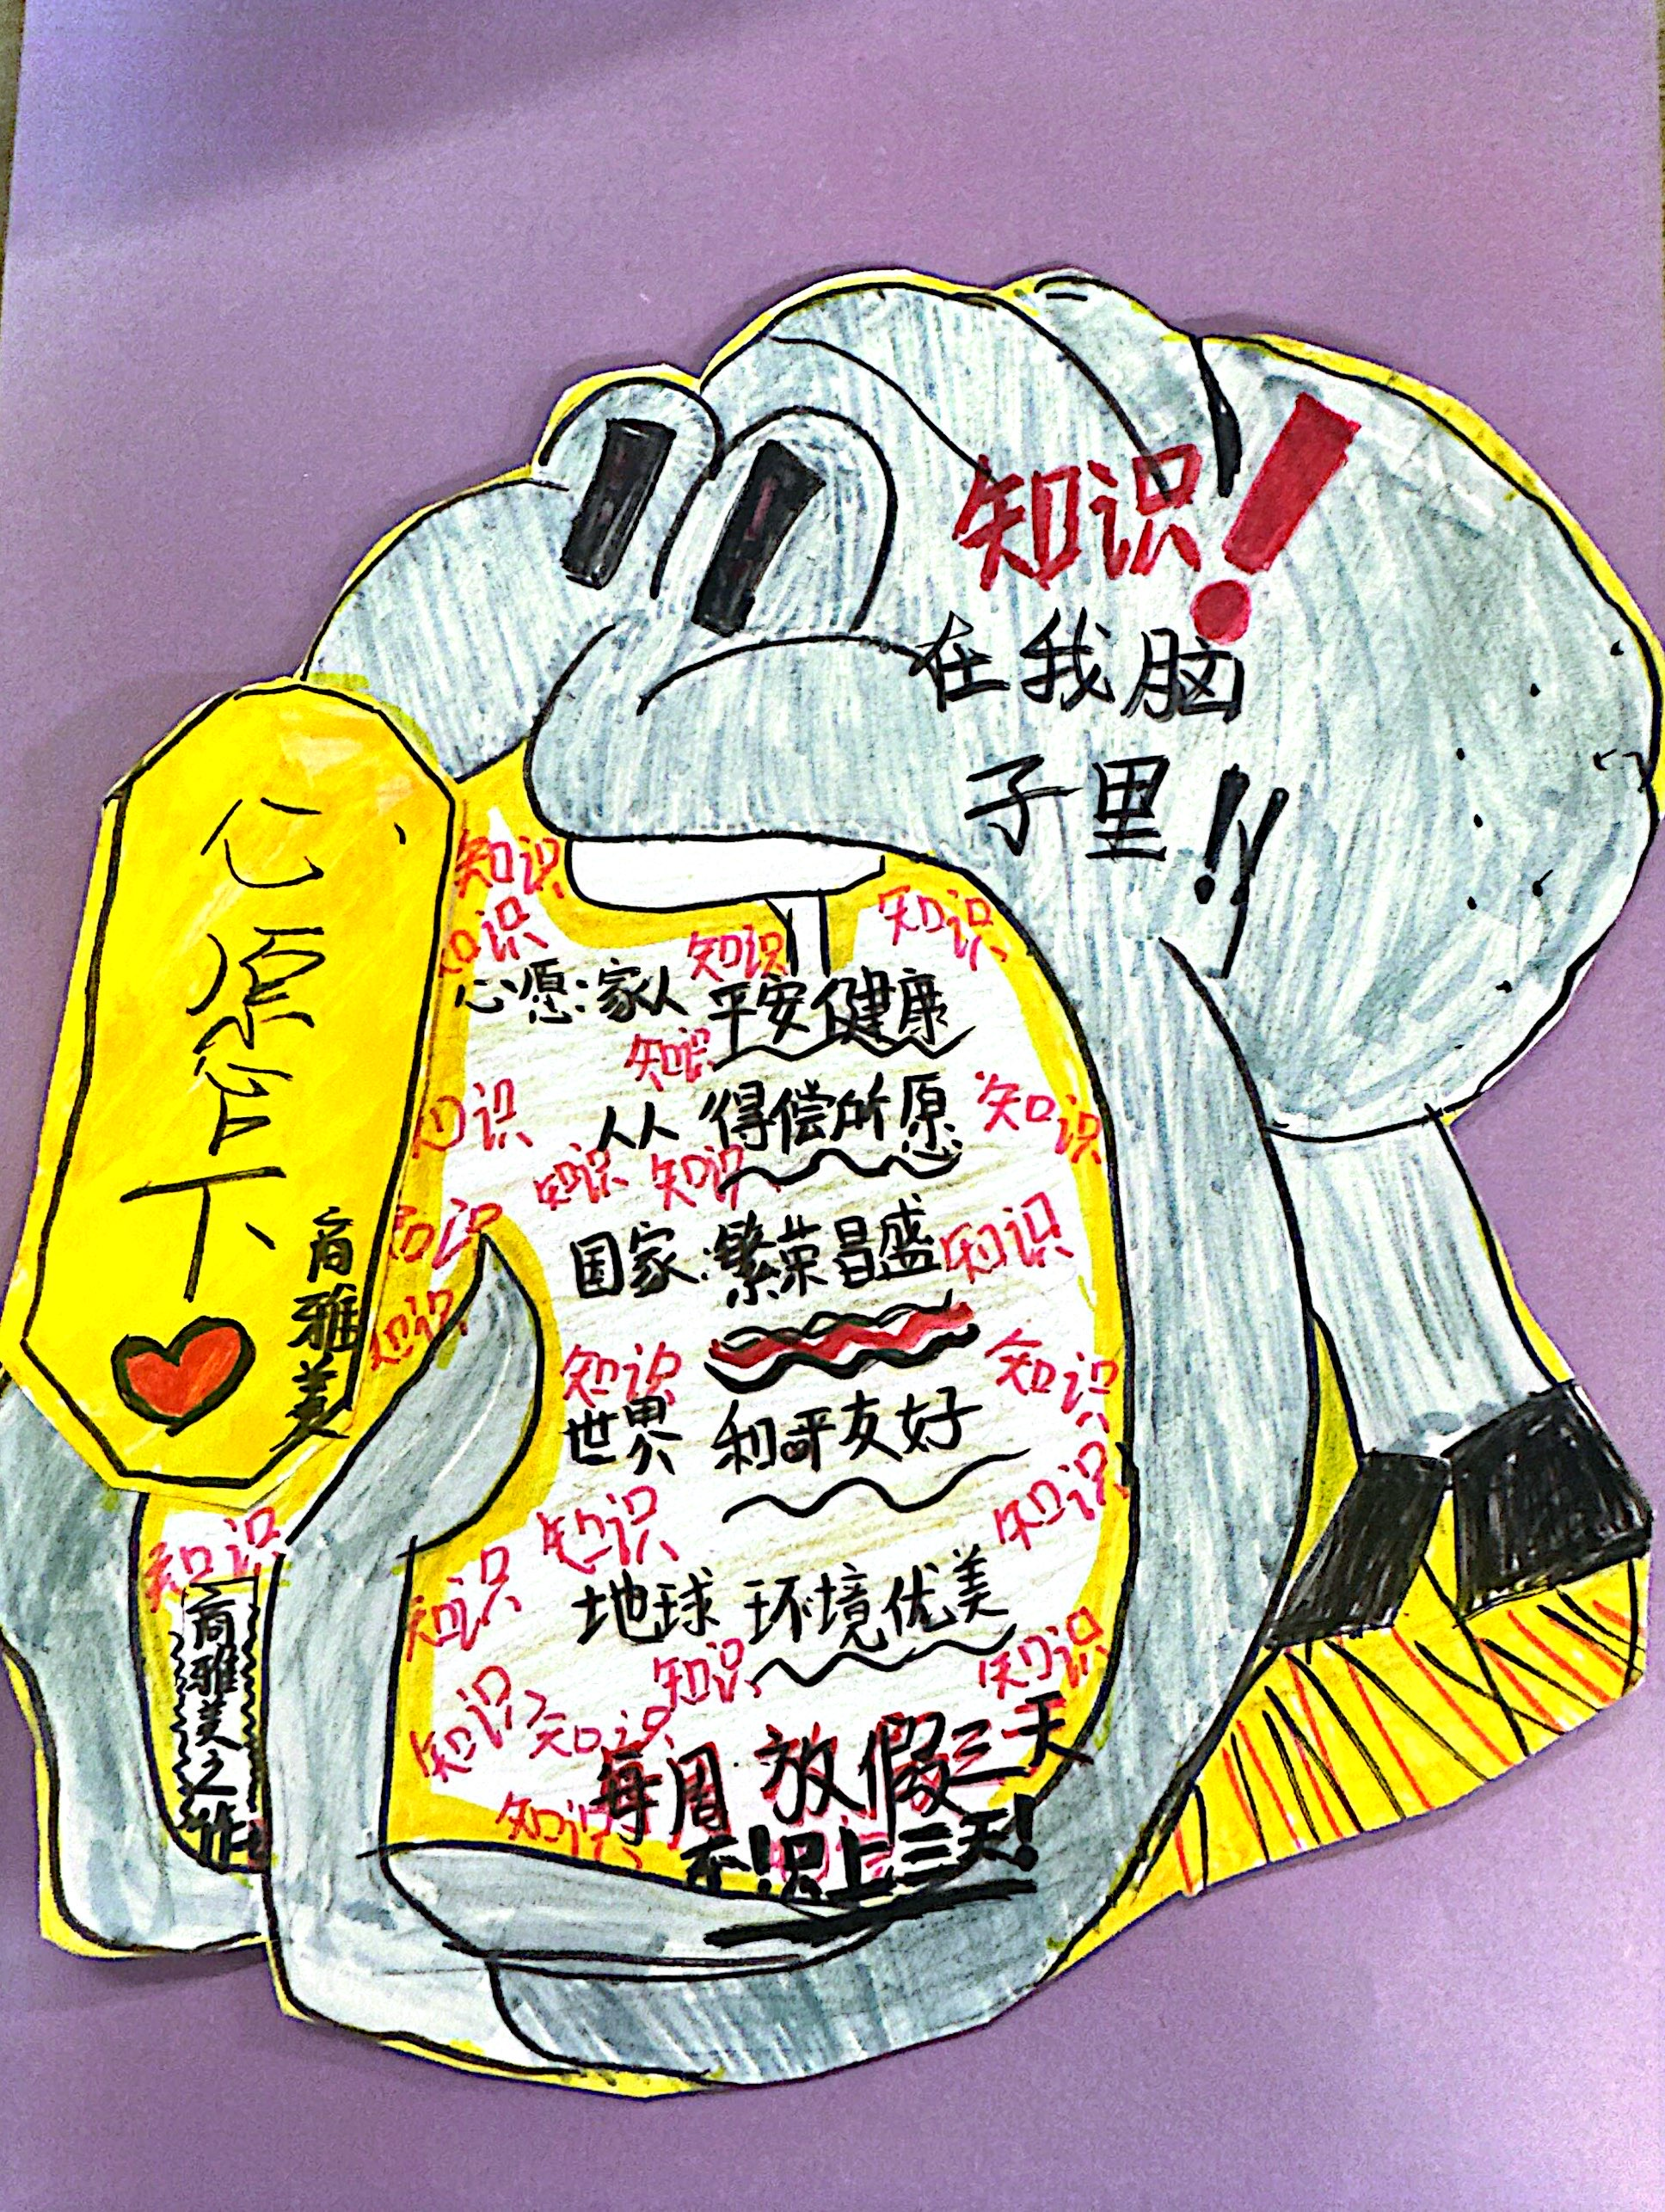 知识！
在我脑
子里!!
心愿卡
商雅美
知识
知识
知识
知识
心愿:家人 平安健康
知识
知识
人人 得偿所愿
知识
知识
知识
知识
国家:繁荣昌盛
知识
知识
知识
知识
世界 和平友好
知识
知识
知识
地球 环境优美
知识
知识
知识
知识
知识
每周 放假三天
知识
上三天!
知识
商雅美之作